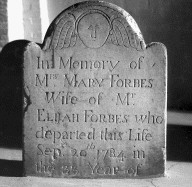 In Memory of
Mrs MARY FORBES
Wife of Mr
ELIJAH FORBES who
departed this Life
Sepr 26th 1784 in
the Year of